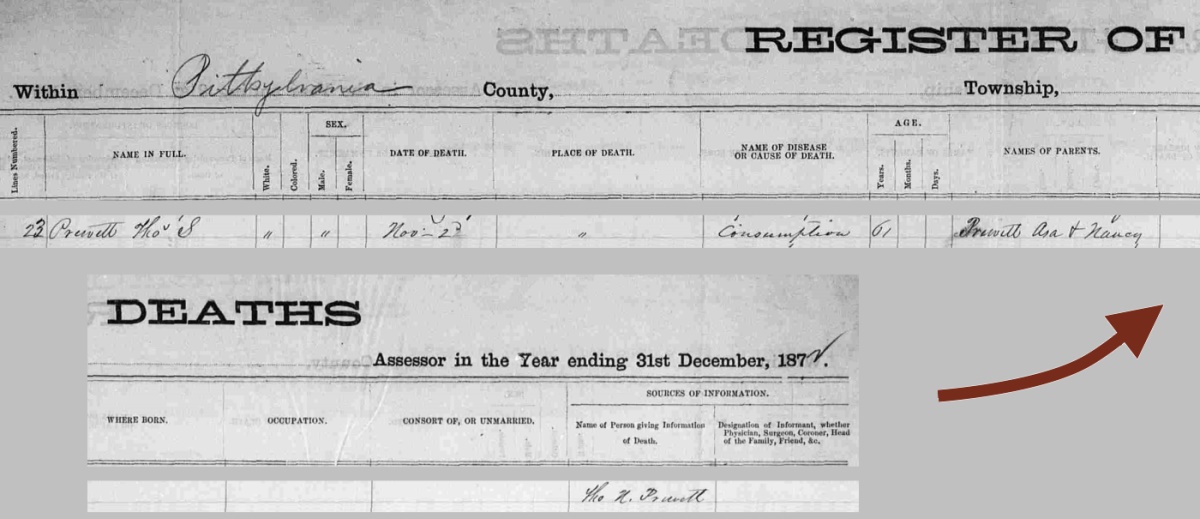 REGISTER OF
Within Pittsylvania County, Township,
Lines Numbered. NAME IN FULL. White. Colored. SEX. Male. Female. DATE OF DEATH. PLACE OF DEATH. NAME OF DISEASE OR CAUSE OF DEATH. AGE. Years. Months. Days. NAMES OF PARENTS.
23 Prewett Thos S " " Nov 2d " Consumption 61 Prewett Asa & Nancy
DEATHS
Assessor in the Year ending 31st December, 187
SOURCES OF INFORMATION.
WHERE BORN. OCCUPATION. CONSORT OF, OR UNMARRIED. Name of Person giving Information of Death. Designation of Informant, whether Physician, Surgeon, Coroner, Head of the Family, Friend, &c.
Tho N. Prewett